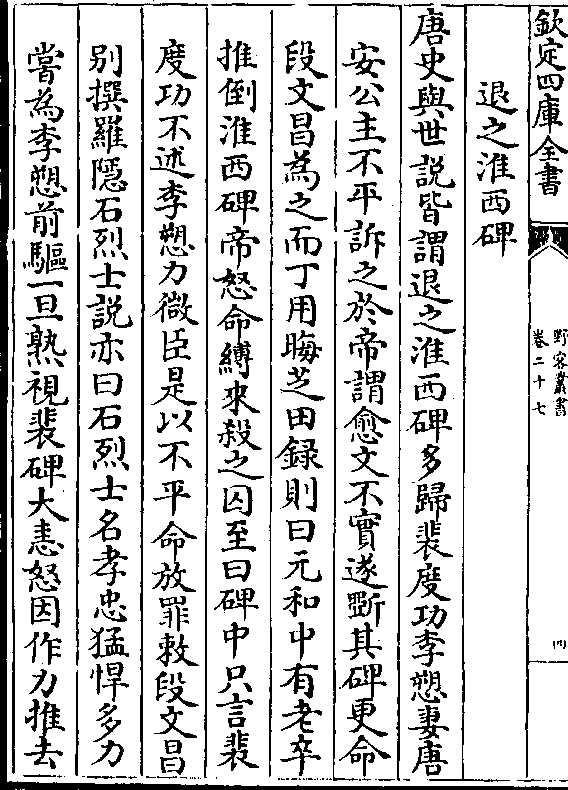 欽定四庫全書
野客叢書
卷二十七
四
退之淮西碑
唐史與世說皆謂退之淮西碑多歸裴度功李愬妻唐
安公主不平訴之於帝謂愈文不實遂斵其碑更命
段文昌為之而丁用晦芝田録則曰元和中有老卒
推倒淮西碑帝怒命縛來殺之囚至曰碑中只言裴
度功不述李愬力微臣是以不平命放罪敕段文昌
别撰羅隱石烈士說亦曰石烈士名孝忠猛悍多力
嘗為李愬前驅一旦熟視裴碑大恚怒因作力推去